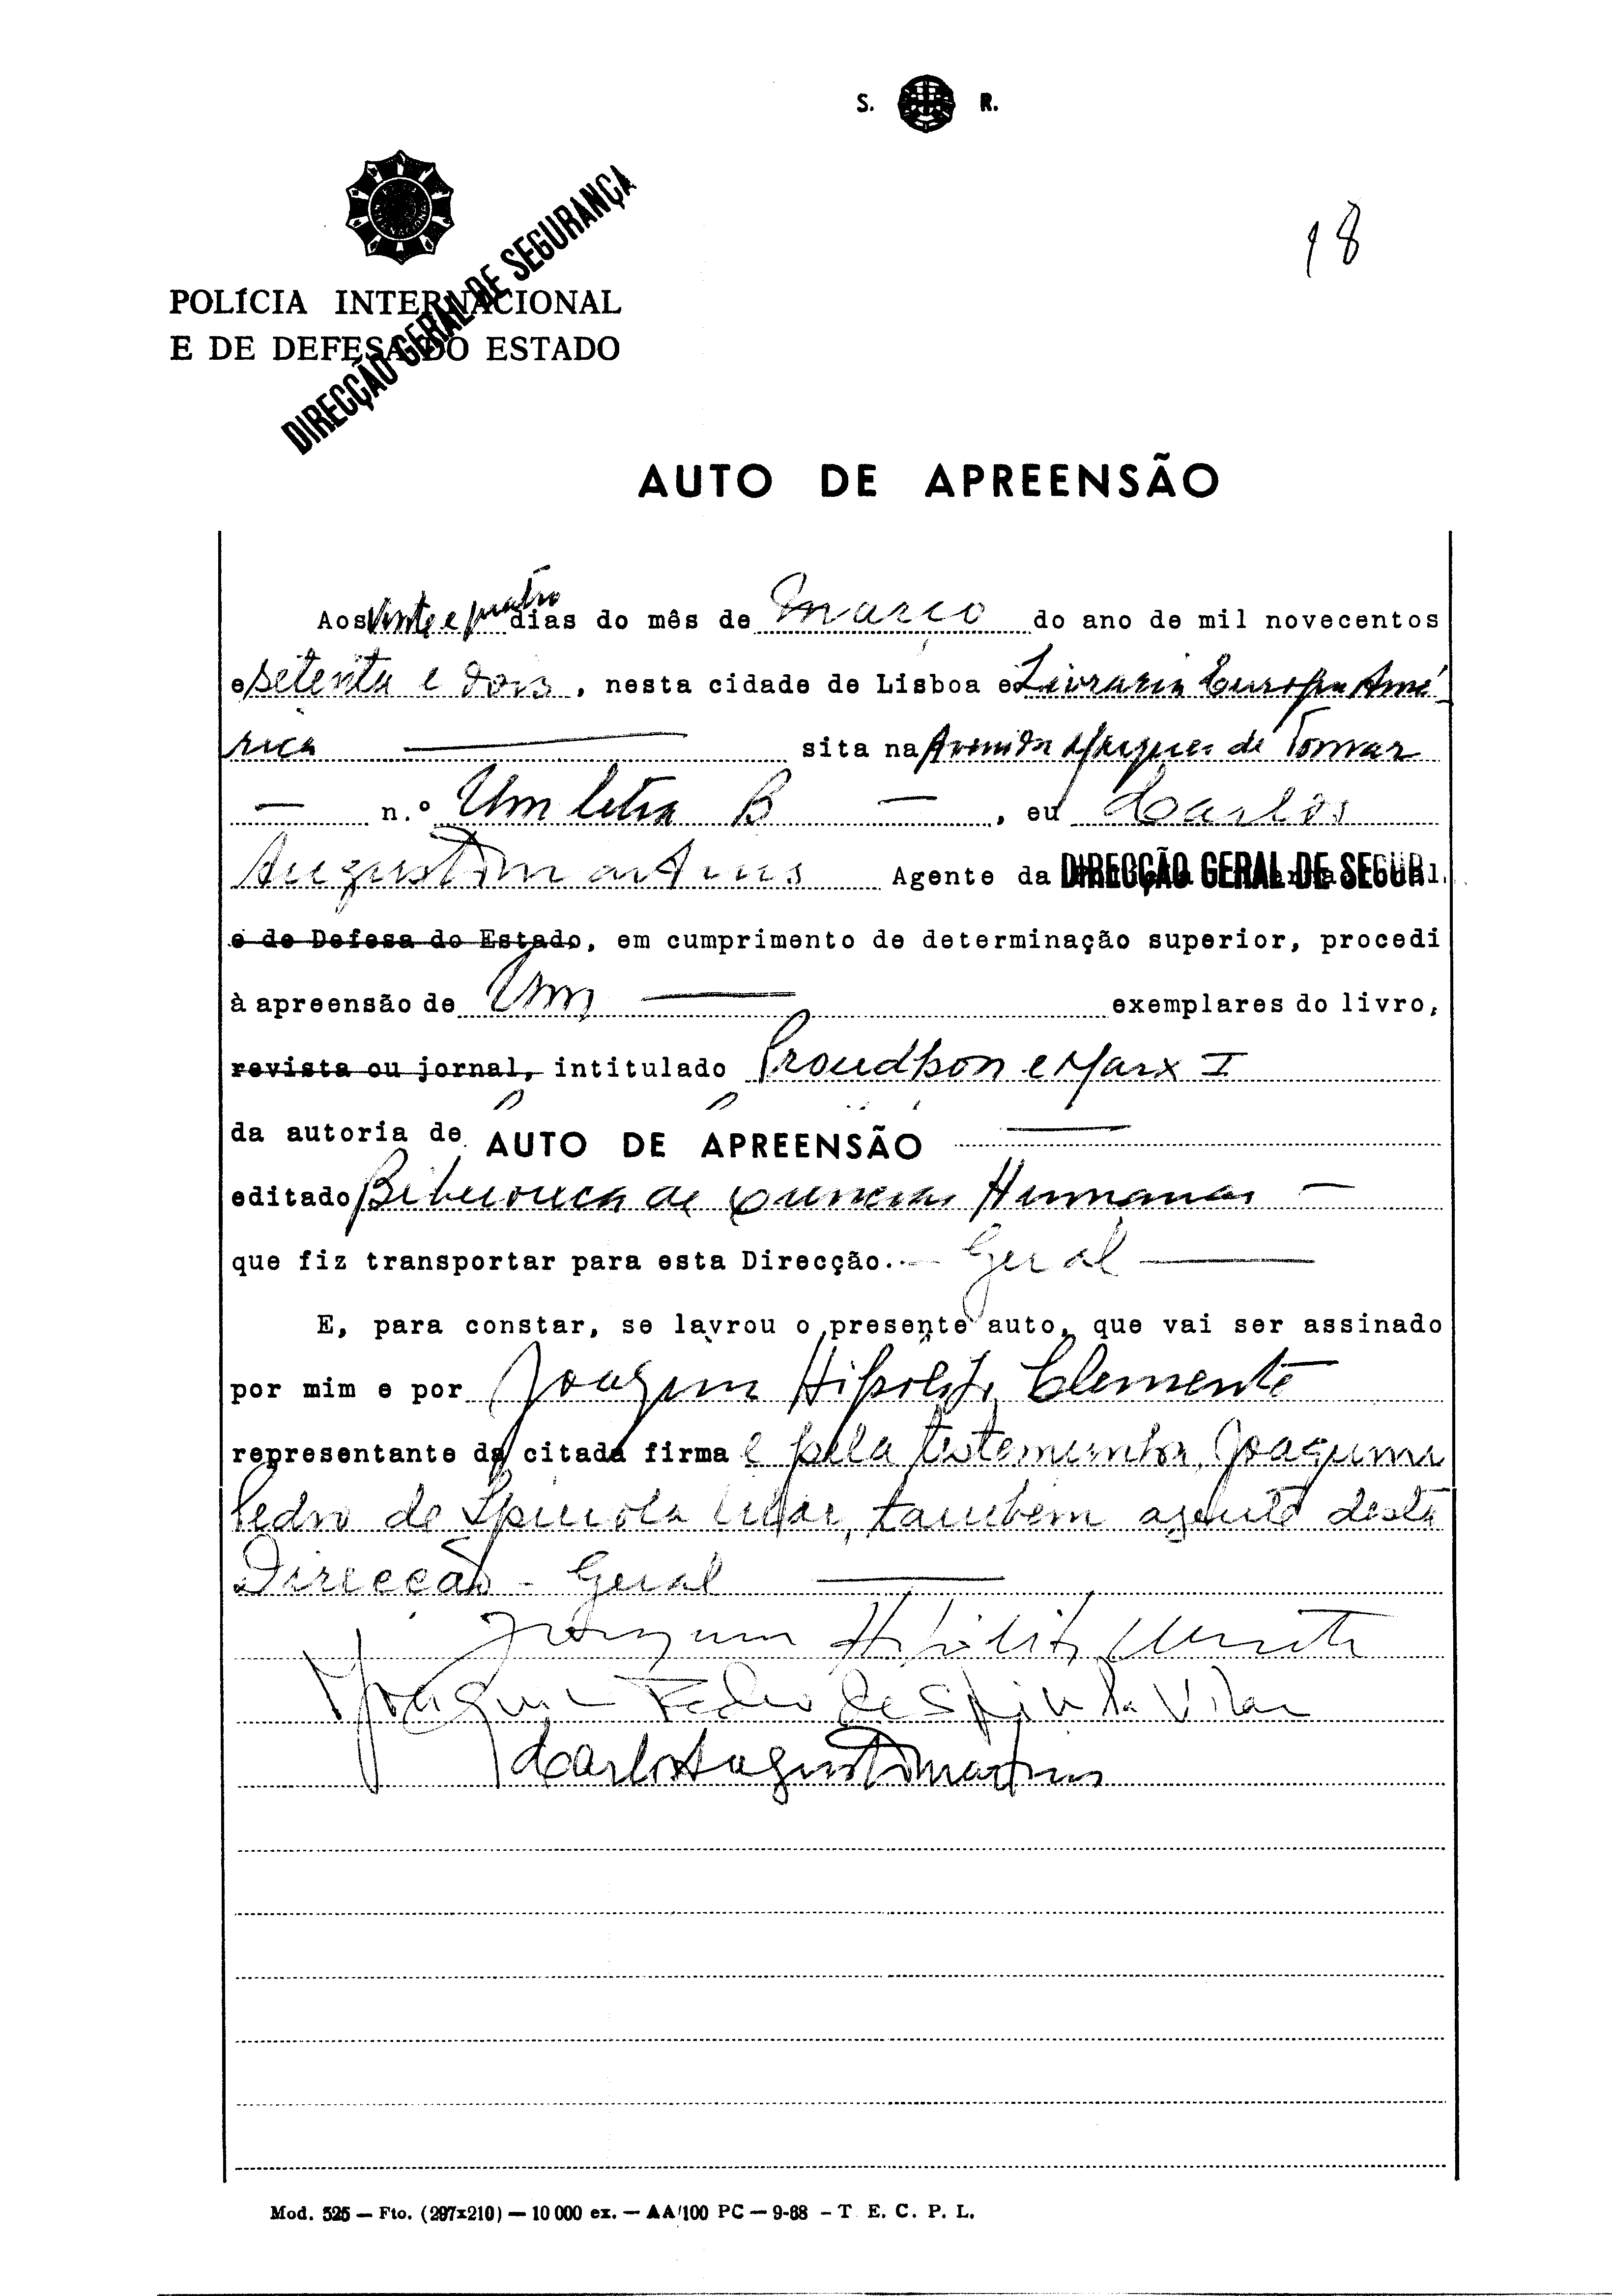 S. R.
18
DIRECÇÃO GERAL DE SEGURANÇA
POLÍCIA INTERNACIONAL
E DE DEFESA DO ESTADO
AUTO DE APREENSÃO
Aos Vinte e quatro dias do mês de Março do ano de mil novecentos
e setenta e dois, nesta cidade de Lisboa e Livraria Europa Amé-
rica sita na Avenida Marques de Tomar
— n.º Um letra B —, eu Carlos
Augusto Martins Agente da DIRECÇÃO GERAL DE SEGUR
e de Defesa do Estado, em cumprimento de determinação superior, procedi
à apreensão de Um — exemplares do livro,
revista ou jornal, intitulado Proudhon e Marx I
da autoria de AUTO DE APREENSÃO —
editado Biblioteca de Ciencias Humanas —
que fiz transportar para esta Direcção.— Geral —
E, para constar, se lavrou o presente auto, que vai ser assinado
por mim e por Joaquim Hipólito Clemente
representante da citada firma e pela testemunha, Joaquim
Pedro de Spinola Vilar, tambem agente desta
Direcção - Geral —
Joaquim Hipólito Clemente
Joaquim Pedro de Spinola Vilar
Carlos Augusto Martins
Mod. 525 — Fto. (297x210) — 10 000 ex. — AA/100 PC — 9-68 - T. E. C. P. L.